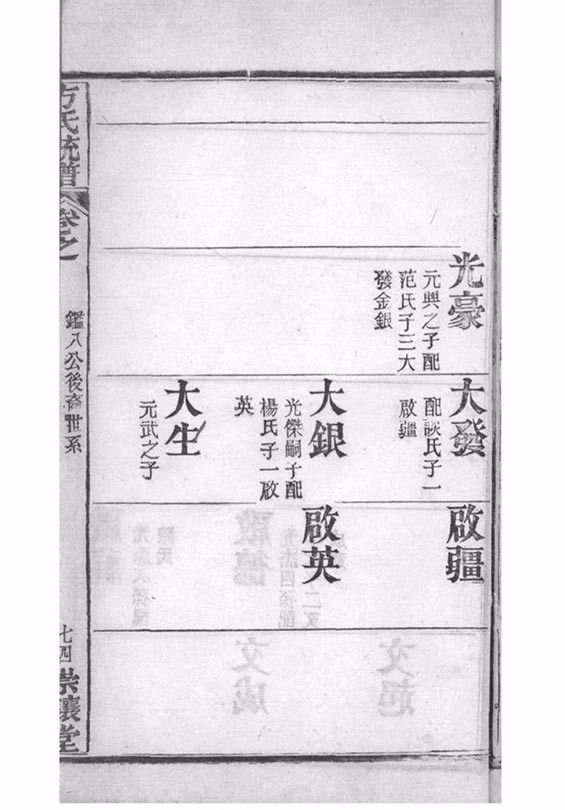 光豪
元興之子配
范氏子三大
發金銀
大發
配談氏子一
啟疆
大銀
光傑嗣子配
楊氏子一啟
英
大生
元武之子
啟疆
啟英
方氏統譜
卷之
鑑八公後裔世系
七四
崇讓堂